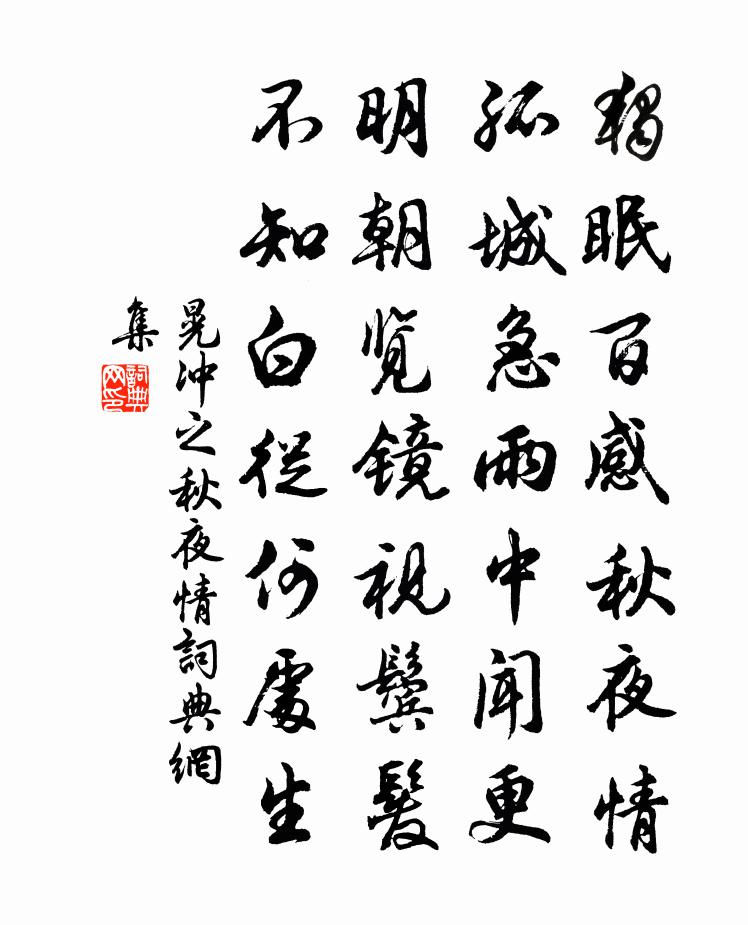 獨眠百感秋夜情
孤城急雨中聞更
明朝覽镜視鬓髮
不知白從何處生
晃冲之秋夜情詞典網
集
詞典
网印